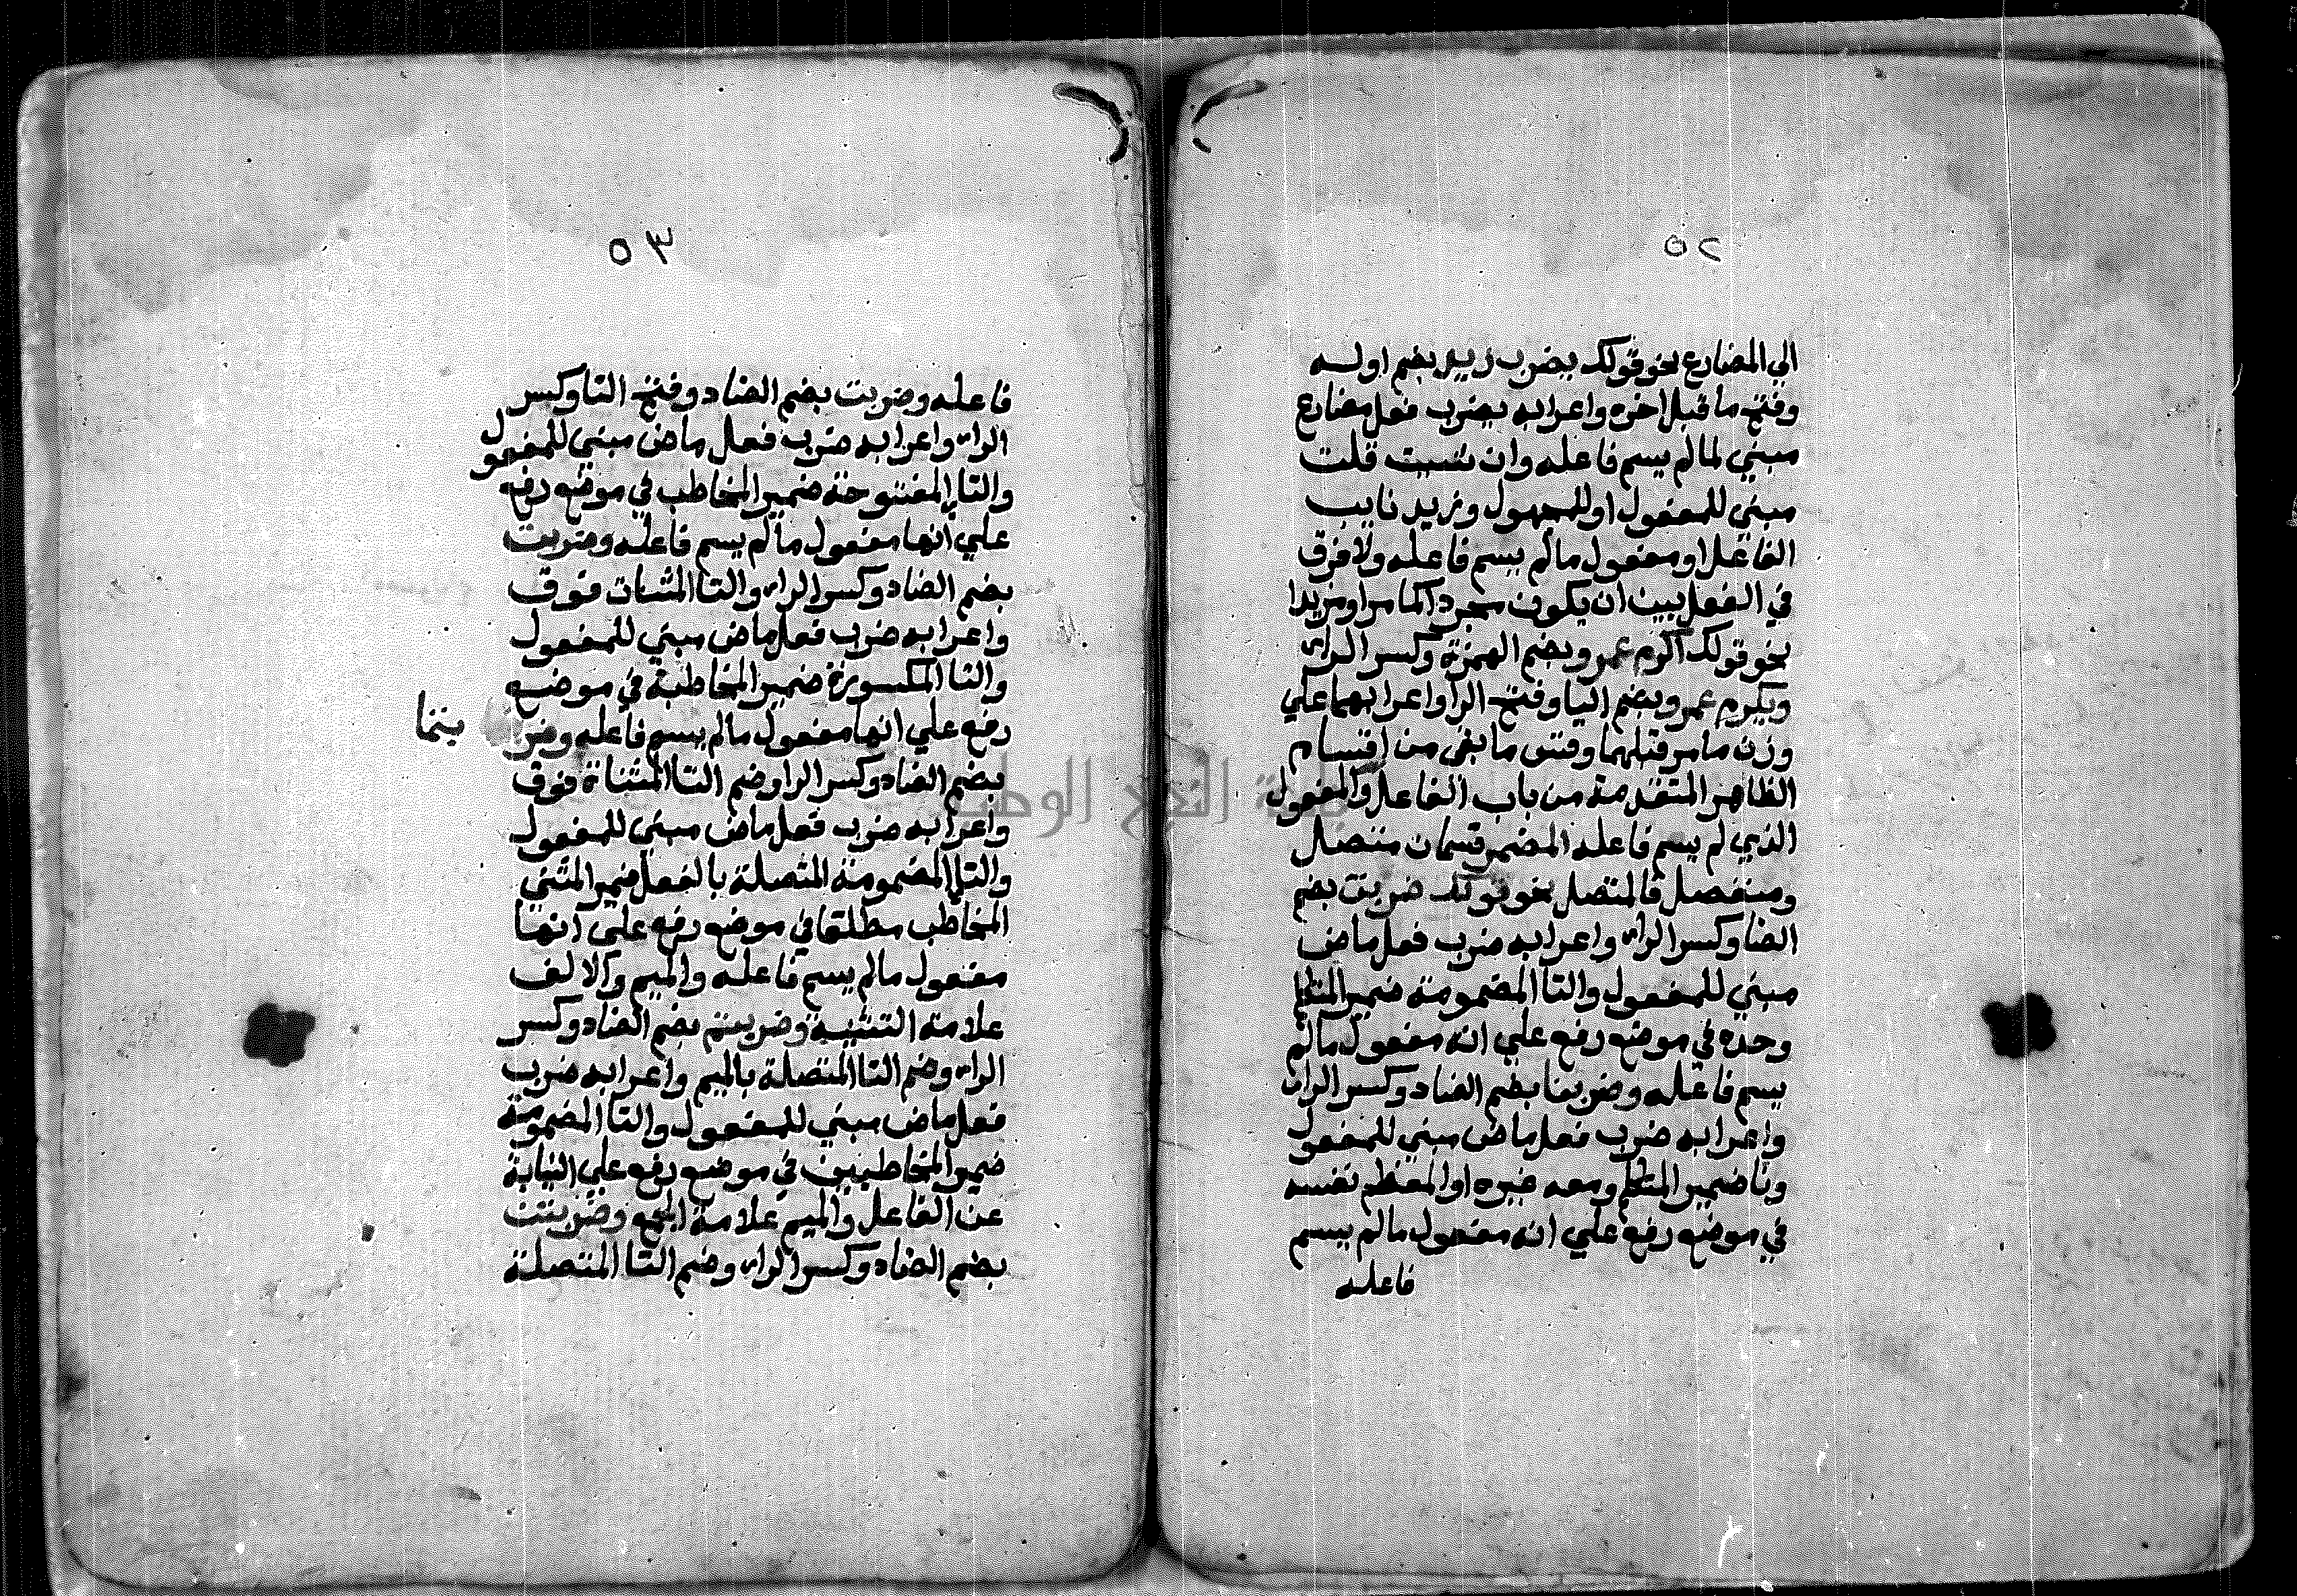 ٥٢
الي المضارع نحو قولك يضرب زيد بضم اوله
وفتح ما قبل اخره واعرابه يضرب فعل مضارع
مبني لما لم يسم فاعله وان شيت قلت
مبني للمفعول او للمجهول وزيد نايب
الفاعل او مفعول ما لم يسم فاعله ولا فرق
في الفعل بين ان يكون مجردا كما مر او مزيدا
نحو قولك اكرم عمرو بضم الهمزة وكسر الراء
ويكرم عمرو بضم اليا وفتح الرا واعرابهما علي
وزن ما مر قبلهما وقس ما بقى من اقسام
الظاهر المتقدمة من باب الفاعل والمفعول
الذي لم يسم فاعله المضمر قسمان متصل
ومنفصل فالمتصل نحو قولك ضربت بضم
الضا وكسر الراء واعرابه ضرب فعل ماض
مبني للمفعول والتا المضمومة ضمير المتكلم
وحده في موضع رفع علي انه مفعول ما لم
يسم فاعله وضربنا بضم الضاد وكسر الراء
واعرابه ضرب فعل ماض مبني للمفعول
ونا ضمير المتكلم ومعه غيره او المعظم نفسه
في موضع رفع علي انه مفعول ما لم يسم
فاعله
٥٣
فاعله وضربت بضم الضاد وفتح التا وكسر
الراء واعرابه ضرب فعل ماض مبني للمفعول
والتا المفتوحة ضمير المخاطب في موضع رفع
علي انها مفعول ما لم يسم فاعله وضربت
بضم الضاد وكسر الراء والتا المثنات فوق
واعرابه ضرب فعل ماض مبني للمفعول
والتا المكسورة ضمير المخاطبة في موضع
رفع علي انها مفعول ما لم يسم فاعله وضر بتما
بضم الضاد وكسر الرا وضم التا المثناة فوق
واعرابه ضرب فعل ماض مبني للمفعول
والتا المضمومة المتصلة بالفعل ضمير المثني
المخاطب مطلقا في موضع رفع على انها
مفعول ما لم يسم فاعله والميم والالف
علامة التثنية وضربتم بضم الضاد وكسر
الراء وضم التا المتصلة بالميم واعرابه ضرب
فعل ماض مبني للمفعول والتا المضمومة
ضمير المخاطبين في موضع رفع علي النيابة
عن الفاعل والميم علامة الجمع وضربتن
بضم الضاد وكسر الراء وضم التا المتصلة